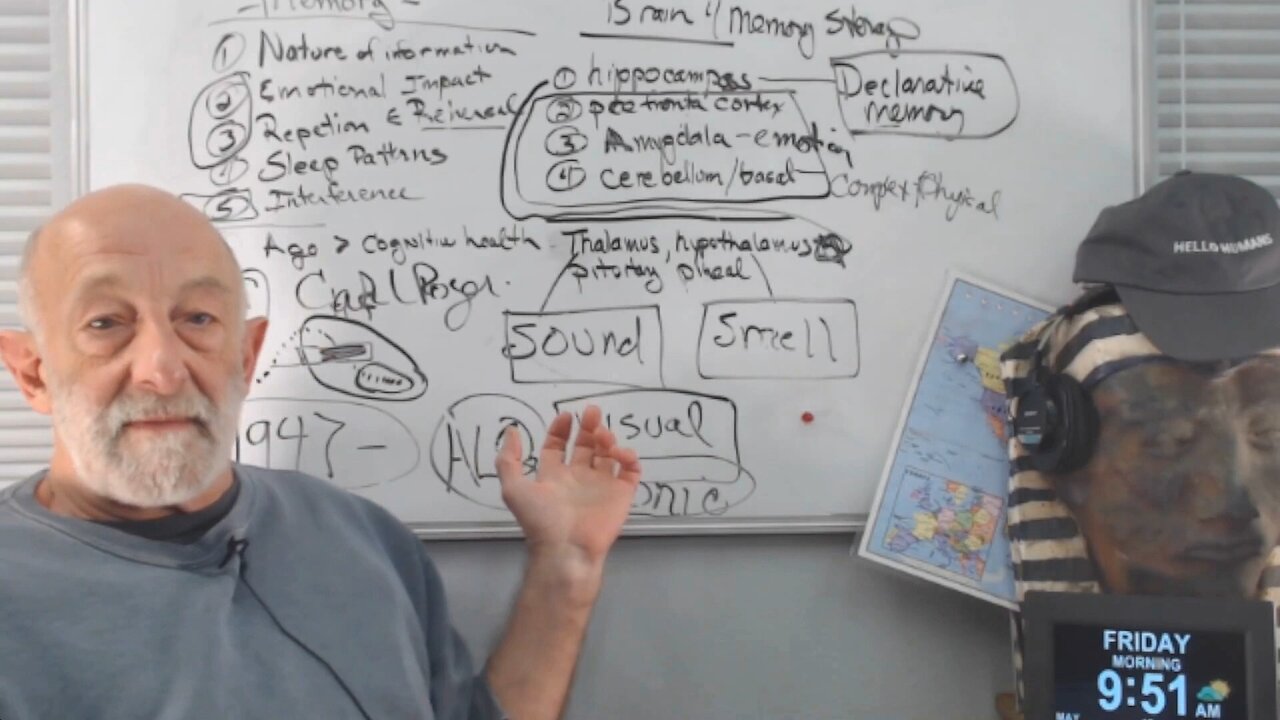 - Memory -
① Nature of information
② Emotional Impact
③ Repetion &
④ Sleep Patterns
⑤ Interference
Age > cognitive health
Brain & Memory Storage
① hippocampus
② prefronta cortex
③ Amygdala - emotion
④ cerebellum/basal
Declarative
memory
Complex/Physical
Thalamus, hypothalamus
pitutay, pineal
Sound
Smell
947-
Visual
onic
HELLO HUMANS
FRIDAY
MORNING
9:51 AM
MAY